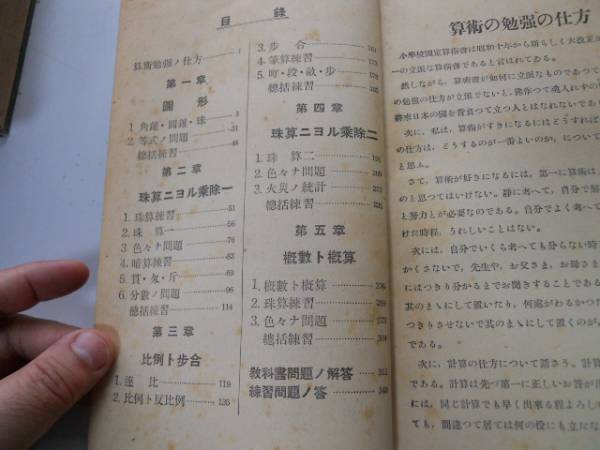 目錄
算術勉强ノ仕方 1
第一章
圖形
1. 角錐・圓錐・球
2. 等式ノ問題 31
總括練習 48
第二章
珠算ニヨル乘除一
1. 珠算練習 51
2. 珠算一 56
3. 色々ナ問題 76
4. 暗算練習 83
5. 貫・匁・斤 89
6. 分數ノ問題 96
總括練習 114
第三章
比例ト步合
1. 連比 119
2. 比例ト反比例 126
3. 步合
4. 筆算練習
5. 町・段・畝・步
總括練習
第四章
珠算ニヨル乘除二
1. 珠算二
2. 色々ナ問題
3. 火災ノ統計
總括練習
第五章
概數ト概算
1. 概數ト概算
2. 珠算練習
3. 色々ナ問題
總括練習
敎科書問題ノ解答
練習問題ノ答
算術の勉强の仕方
小學校國定算術書は昭和十年から新らしく大改正
一の立派な算術書であると言はれてゐる。
然しながら、算術書が如何に立派なものであつて
の勉强の仕方が立派でないと、
來日本の國を背負つて立つ人とはなれないであ
次に、私は、算術がすきになるにはどうすれば
の仕方は、どうするのが一番よいのか、について
と思ふ。
さて、算術が好きになるには、第一に算術は、
のと思つてはいけない。靜に考へて、自分で解
と努力とが必要なのである。自分でよく考へて
けた時程、うれしいことはない。
次には、自分でいくら考へても分らない時
かくさないで、先生や、お父さま、お母さま
にはつきり分かるまでお聞きすることである。
其のまゝにして置いたり、何處がわるかつた
つきりさせないで其のまゝにして置くのが、
である。
次に、計算の仕方について話さう。計算
である。計算は先づ第一に正しいお答が
には、同じ計算でも早く出來る程よろし
ても、間違つて居ては何の役にも立たな